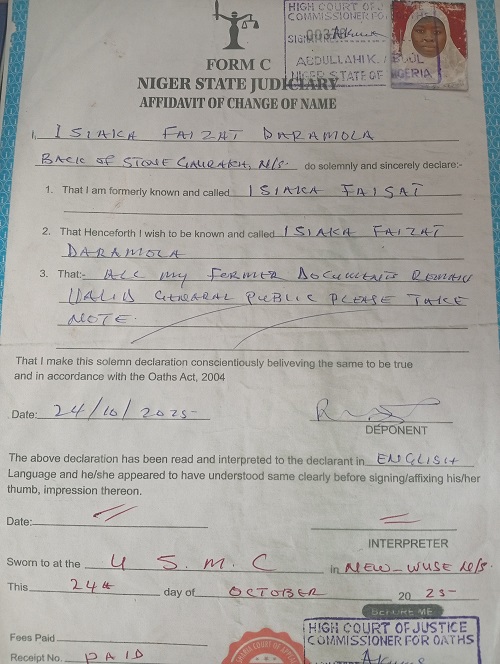 HIGH COURT OF J
COMMISSIONER FO
ABDULLAHI K.
NIGER STATE OF NIGERIA
FORM C
NIGER STATE JUDICIARY
AFFIDAVIT OF CHANGE OF NAME
I, ISIAKA FAIZAT DARAMOLA
BACK OF STONE GAURAKA, N/S. do solemnly and sincerely declare:-
1. That I am formerly known and called ISIAKA FAISAT
2. That Henceforth I wish to be known and called ISIAKA FAIZAT
DARAMOLA
3. That:- ALL my FORMER DOCUMENTS REMAIN
VALID GENERAL PUBLIC PLEASE TAKE
NOTE.
That I make this solemn declaration conscientiously beliveving the same to be true
and in accordance with the Oaths Act, 2004
Date: 24/10/2025
DEPONENT
The above declaration has been read and interpreted to the declarant in ENGLISH
Language and he/she appeared to have understood same clearly before signing/affixing his/her
thumb, impression thereon.
Date:
INTERPRETER
Sworn to at the U.S.M.C in NEW-WUSE N/S.
This 24th day of OCTOBER 2025
BEFORE ME
HIGH COURT OF JUSTICE
COMMISSIONER FOR OATHS
Fees Paid
Receipt No. PAID